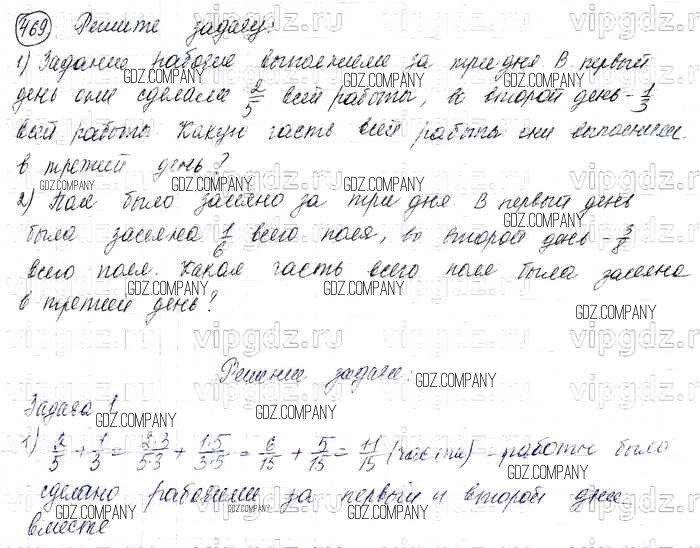 469 Решите задачу:
1) Задание рабочие выполнили за три дня В первый
день они сделали 2/5 всей работы, во второй день - 1/3
всей работы. Какую часть всей работы они выполнили
в третий день?
2) Поле было засеяно за три дня. В первый день
было засеяно 1/6 всего поля, во второй день - 3/8
всего поля. Какая часть всего поля была засеяна
в третий день?
Решение задачи:
Задача 1
1) 2/5 + 1/3 = 2·3/5·3 + 1·5/3·5 = 6/15 + 5/15 = 11/15 (части) - работы было
сделано рабочими за первый и второй дни
вместе